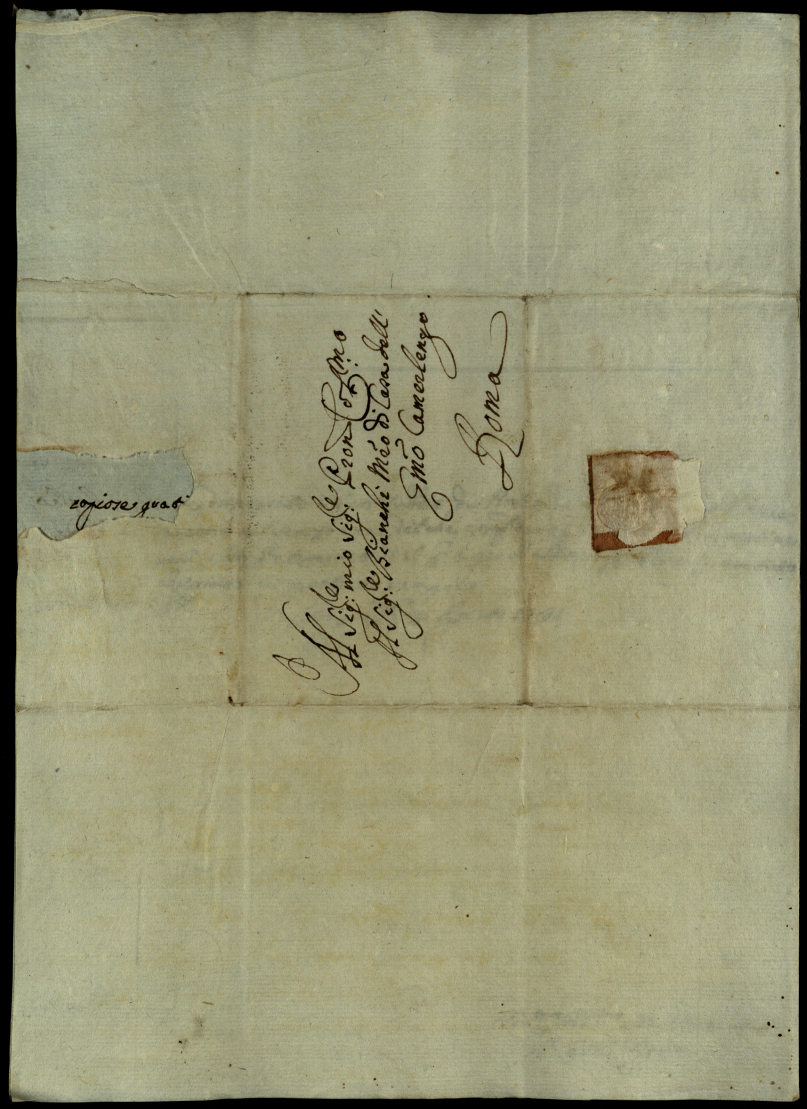 All
Ill.re Sig: mio Sig:re P.ron Col.mo
Il Sig:re Bianchi Mro di Casa dell'
Emo Camerlengo
Roma
copiose, quat